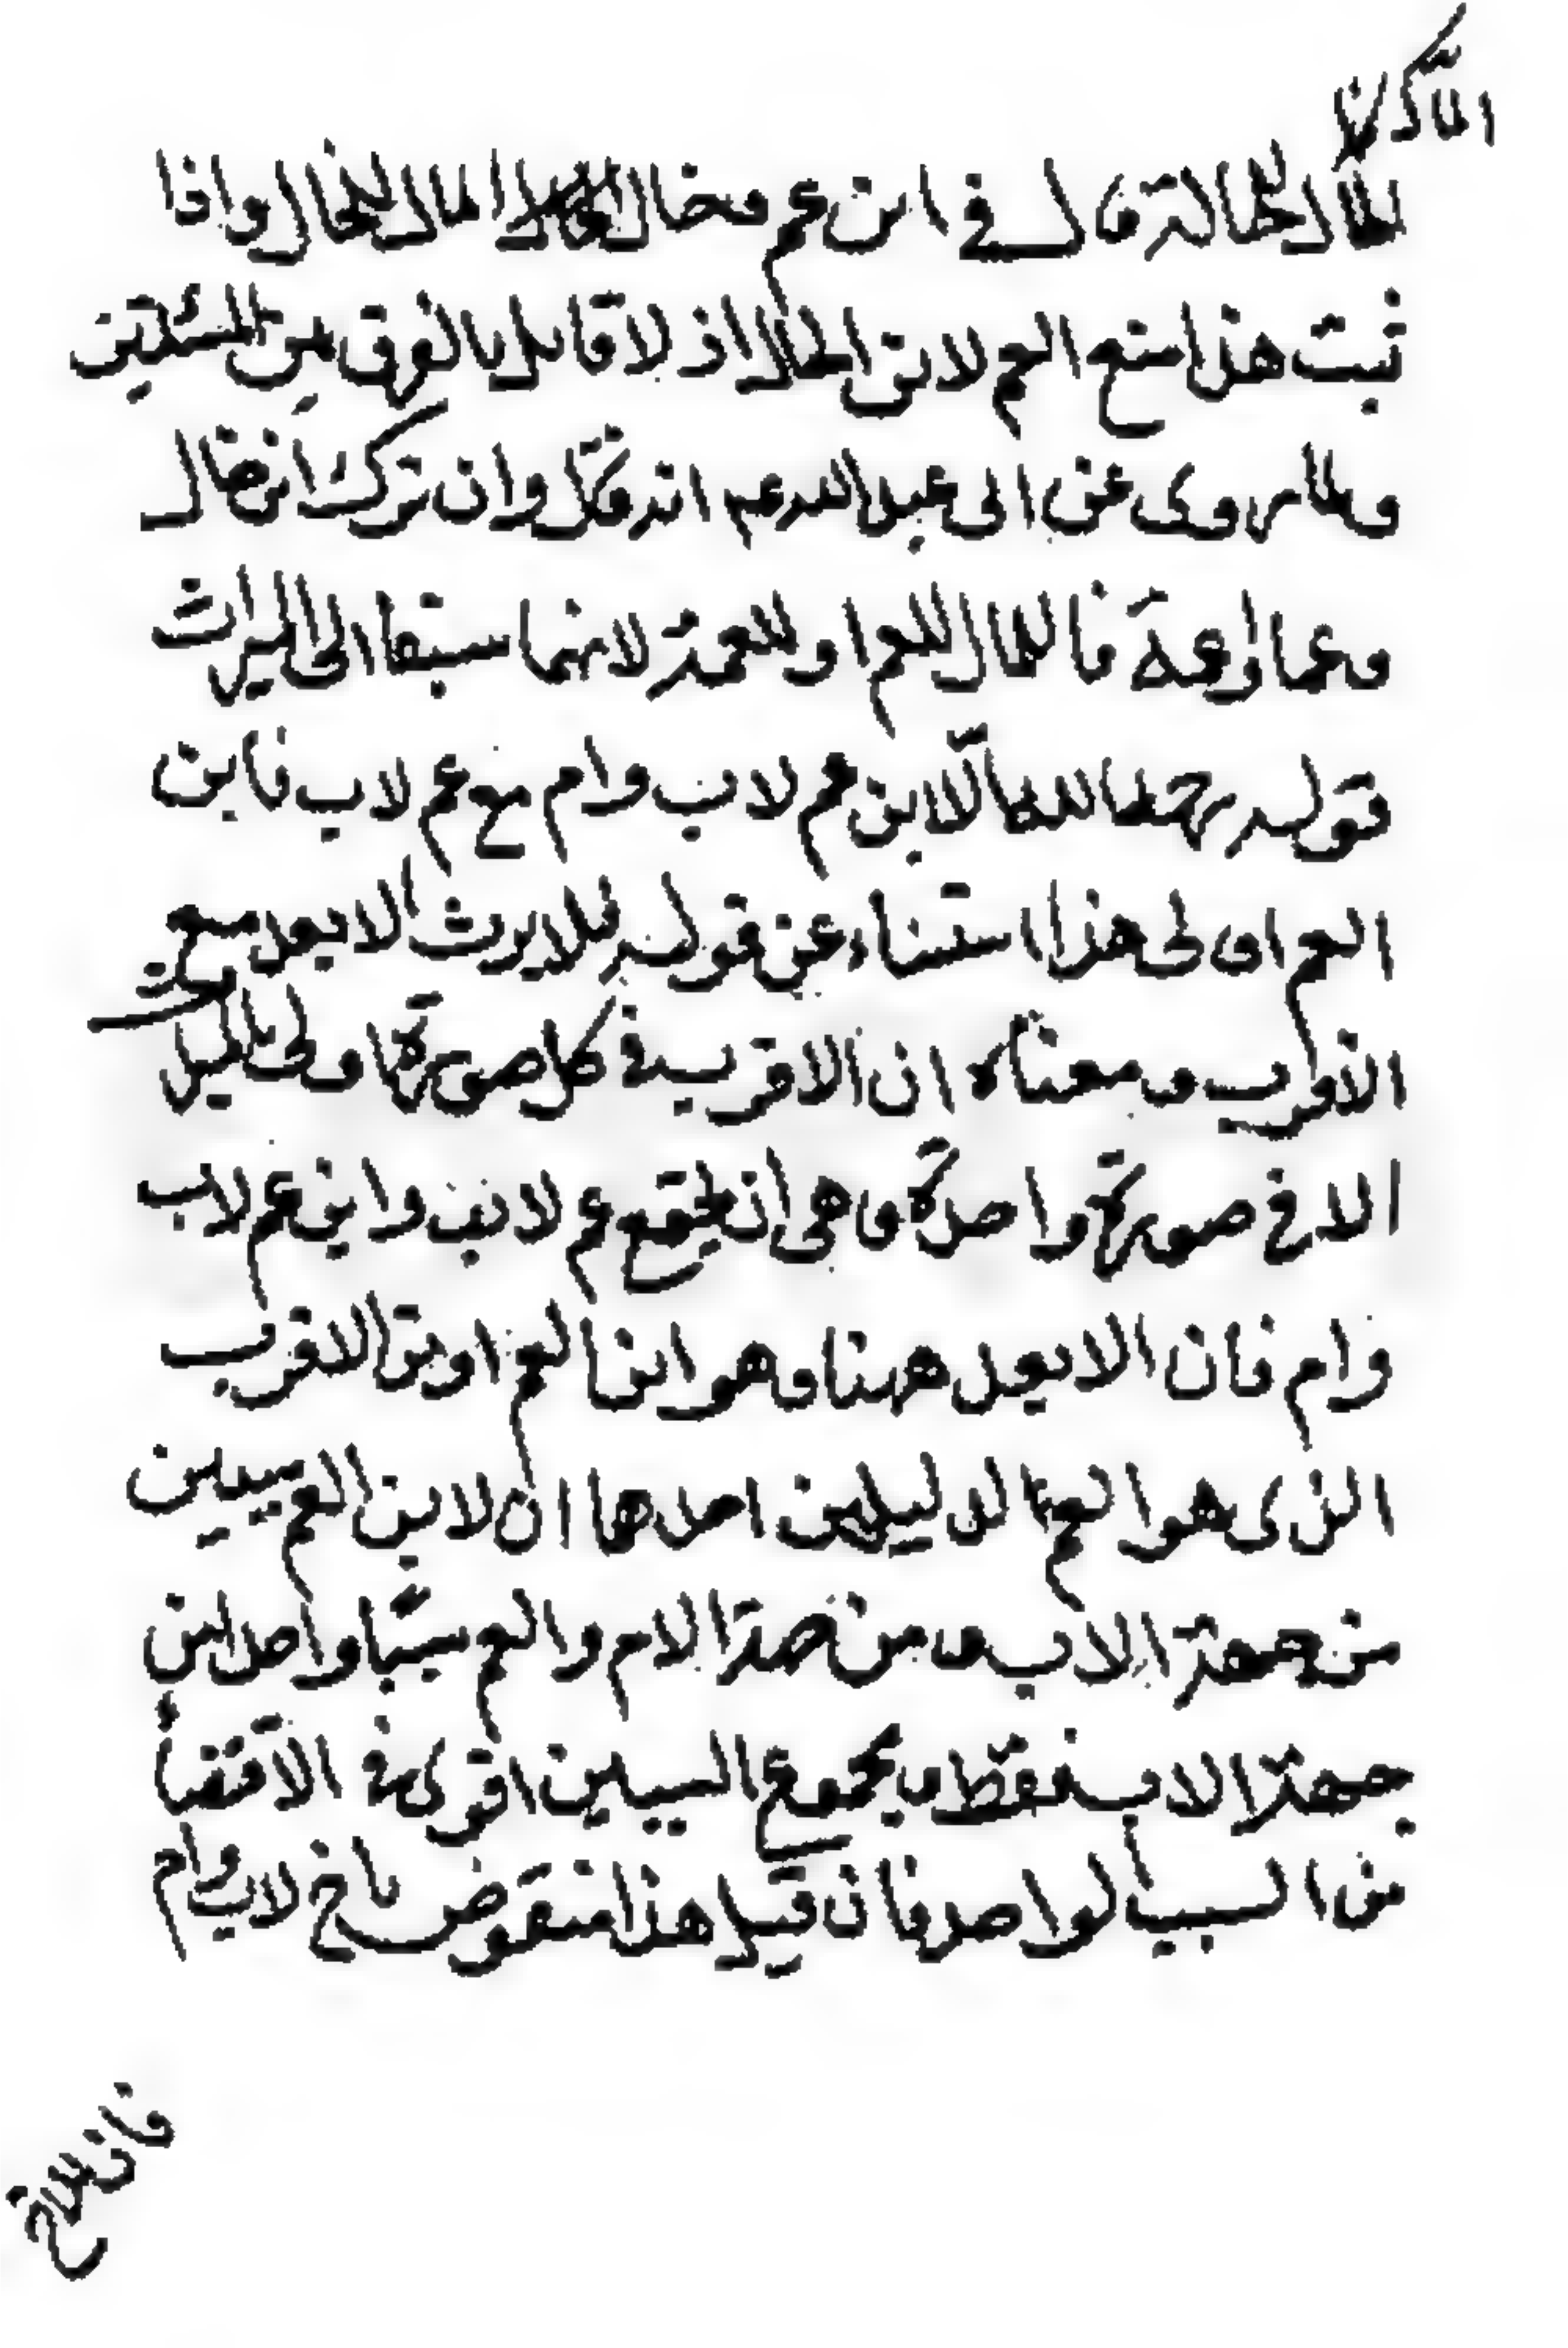 للخال الخالة قال في ابن عم وخال المال للخال واذا
ثبت هذا منع العم لابن الخال اذ لا قايل بالفرق بين المسئلتين
ولما روى عن ابى عبد الله عم انه قال وان ترك ابن خال
وعما او عمة فالمال للعم او للعمة لانهما سبقا الى الميراث
قوله رحمه الله الا ابن عم لاب وام مع عم لاب فابن
العم اولى هذا استثناء عن قوله فلا يرث الا بعد مع
الاقرب ومعناه ان الاقرب في كل صورة اولى بالميراث
الا في صورة واحدة وهى ان يجتمع عم لاب وابن عم لاب
وام فان الابعد هنا وهو ابن العم اولى من الاقرب
الذى هو العم لدليلين احدها ان لابن العم سببين
من جهة الاب ومن جهة الام والعم سببا واحدا من
جهة الاب فقط ومجموع السببين اقوى في الاقتضاء
من السبب الواحد فان قيل هذا منقوض باخ لاب وام
فانه مع